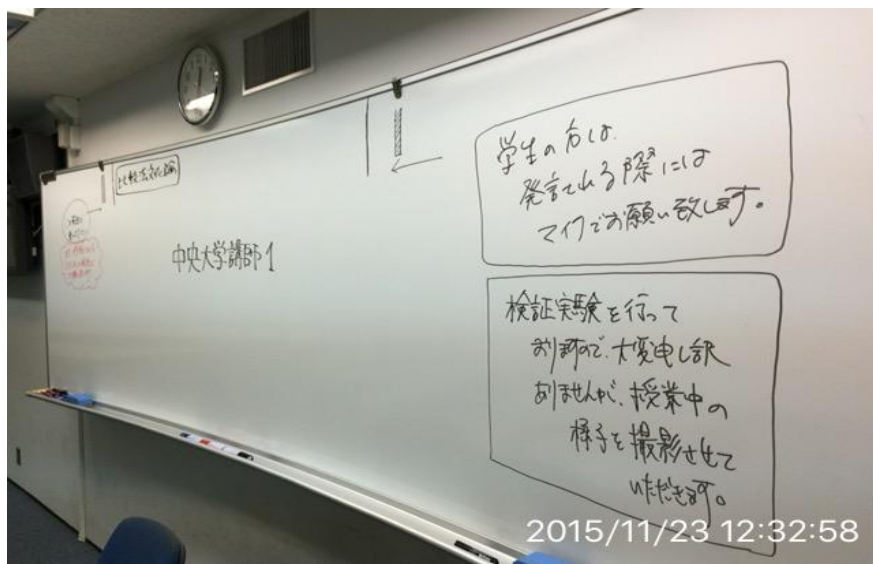 中央大学講師1
学生の方は、
発言される際には
マイクでお願い致します。
検証実験を行って
おりますので、大変申し訳
ありませんが、授業中の
様子を撮影させて
いただきます。
2015/11/23 12:32:58